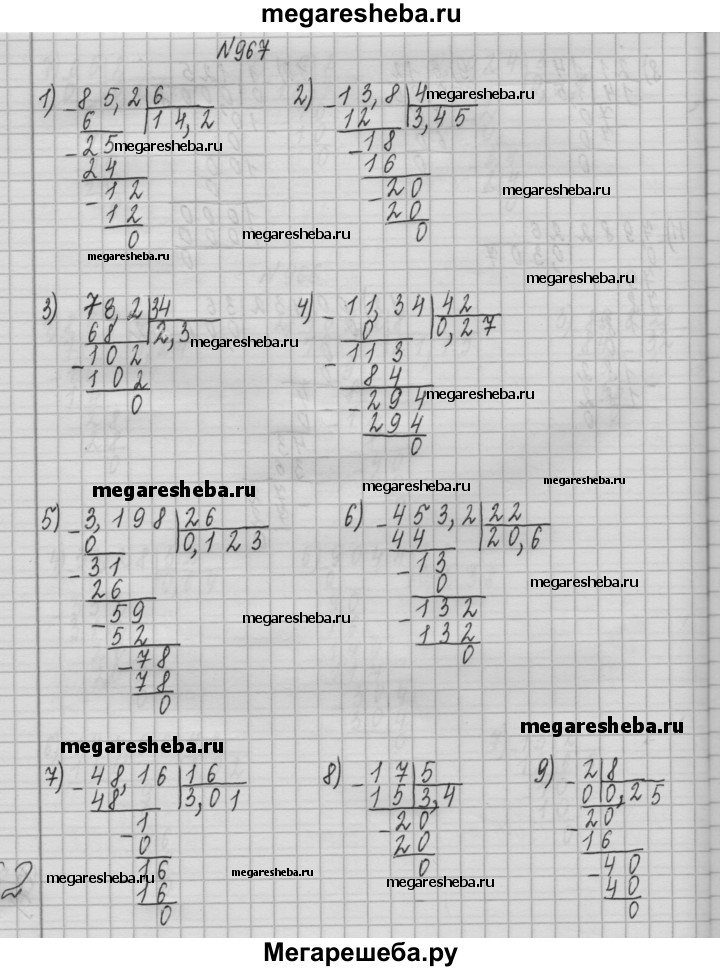 megaresheba.ru
N967
1) -85,2|6 2) -13,8|4 megaresheba.ru
6 |14,2 12 |3,45
-25 megaresheba.ru -18
24 16
-12 -20 megaresheba.ru
12 20
0 megaresheba.ru 0
megaresheba.ru
megaresheba.ru
3) 78,2|34 4) -11,34|42
68 |2,3 megaresheba.ru 0 |0,27
-102 -113
102 84
0 -294 megaresheba.ru
294
0
megaresheba.ru megaresheba.ru megaresheba.ru
5) -3,198|26 6) -453,2|22
0 |0,123 44 |20,6
-31 -13
26 0 megaresheba.ru
-59 megaresheba.ru -132
52 132
-78 0
78
0
megaresheba.ru megaresheba.ru
7) -48,16|16 8) -17|5 9) -2|8
48 |3,01 15|3,4 0|0,25
-1 -20 -20
0 20 16
16 0 -40
megaresheba.ru megaresheba.ru megaresheba.ru
16 40
0 0
Мегарешеба.ру